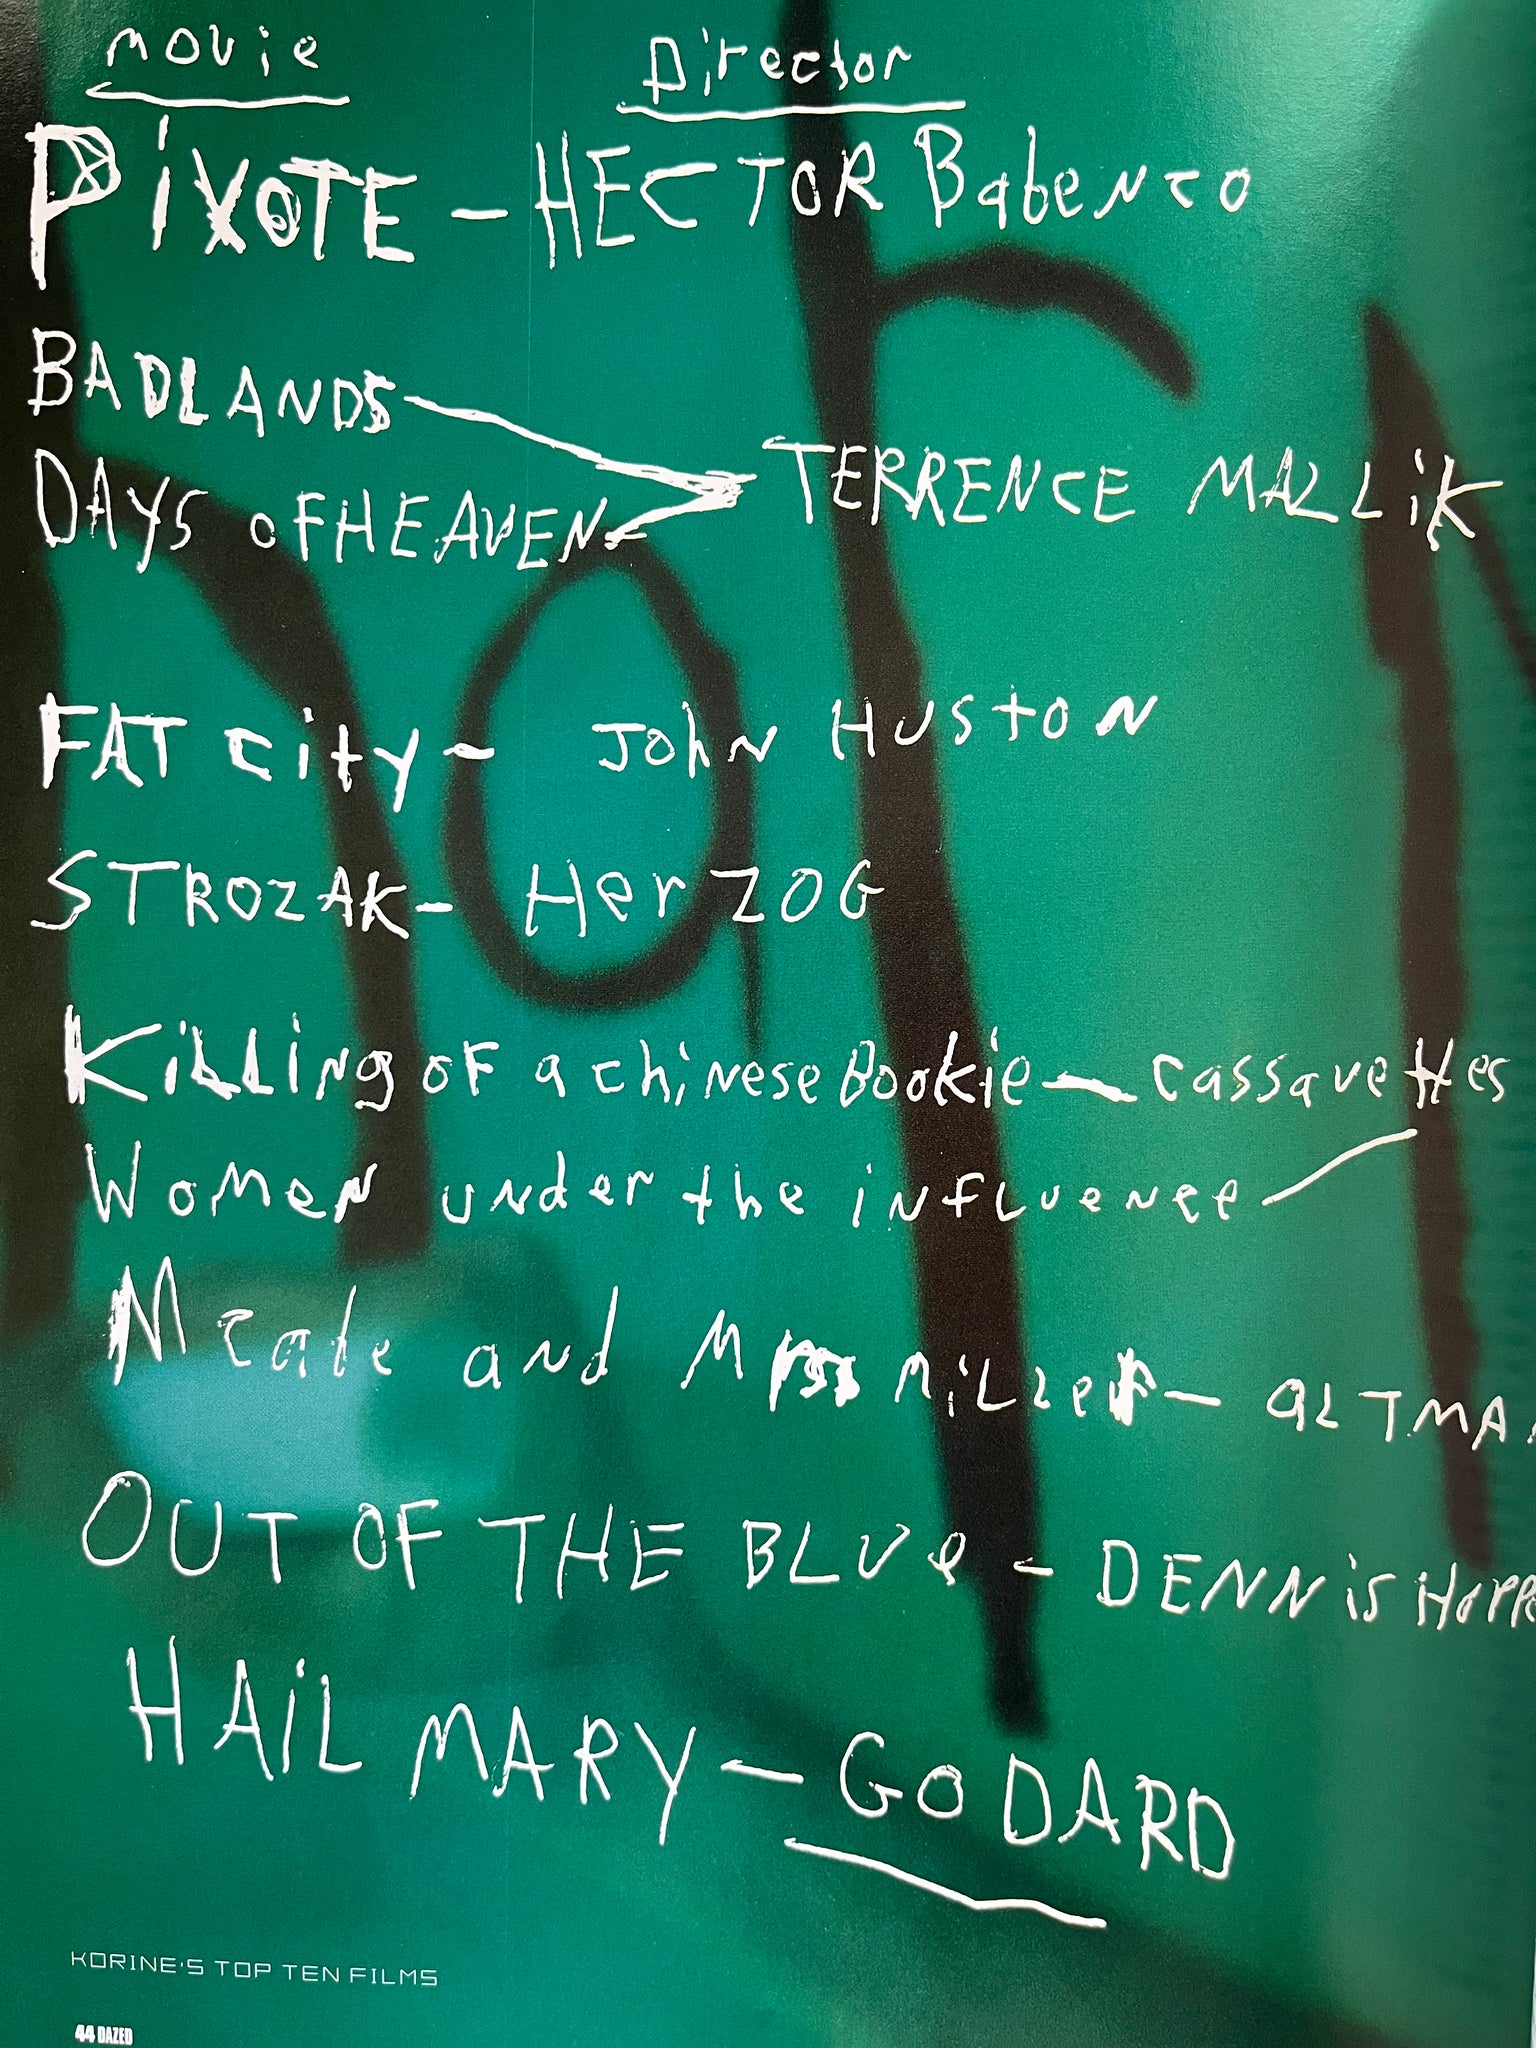 movie Director
PIXOTE - HECTOR Babenco
BADLANDS
DAYS OF HEAVEN TERRENCE MALLiK
FAT City - JOhN HUSTON
STROZAK - HerZOG
KiLLing OF a chiNese Bookie - cassavettes
WomeN uNder the iNFLueNce
Mcabe aNd MRss MiLLer - aLTMA
OUT OF THE BLUe - DENNiS HOPPe
HAiL MARY - GODARD
KORINE'S TOP TEN FILMS
44 DAZED